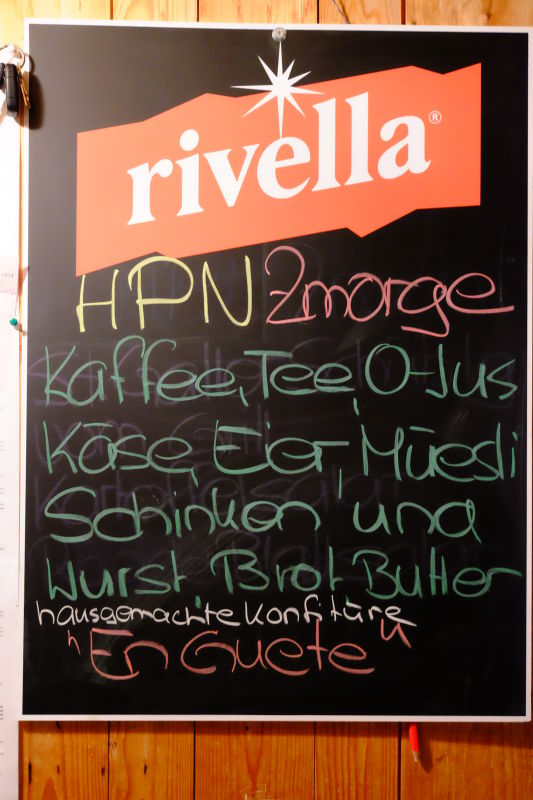 rivella®
HPN Zmorge
Kaffee, Tee, O-Jus
Käse, Eier, Müesli
Schinken und
Wurst Brot Butter
hausgemachte Konfitüre
"En Guete"